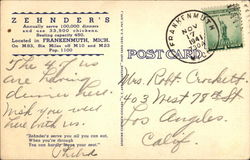 ZEHNDER'S
Annually serve 100,000 dinners
and use 33,500 chickens.
Seating capacity 450.
Located in FRANKENMUTH, MICH.
On M83, Six Miles off M10 and M23
Pop. 1100
POST CARD
FRANKENMUTH
NOV
1941
MICH.
The 4 of us
are having
dinner here.
Wish you were
here with us.
"Zehnder's serve you all you can eat,
When you're through
You can hardly leave your seat."
Mrs. Robt. Crockett
403 West 78th St
Los Angeles.
Calif